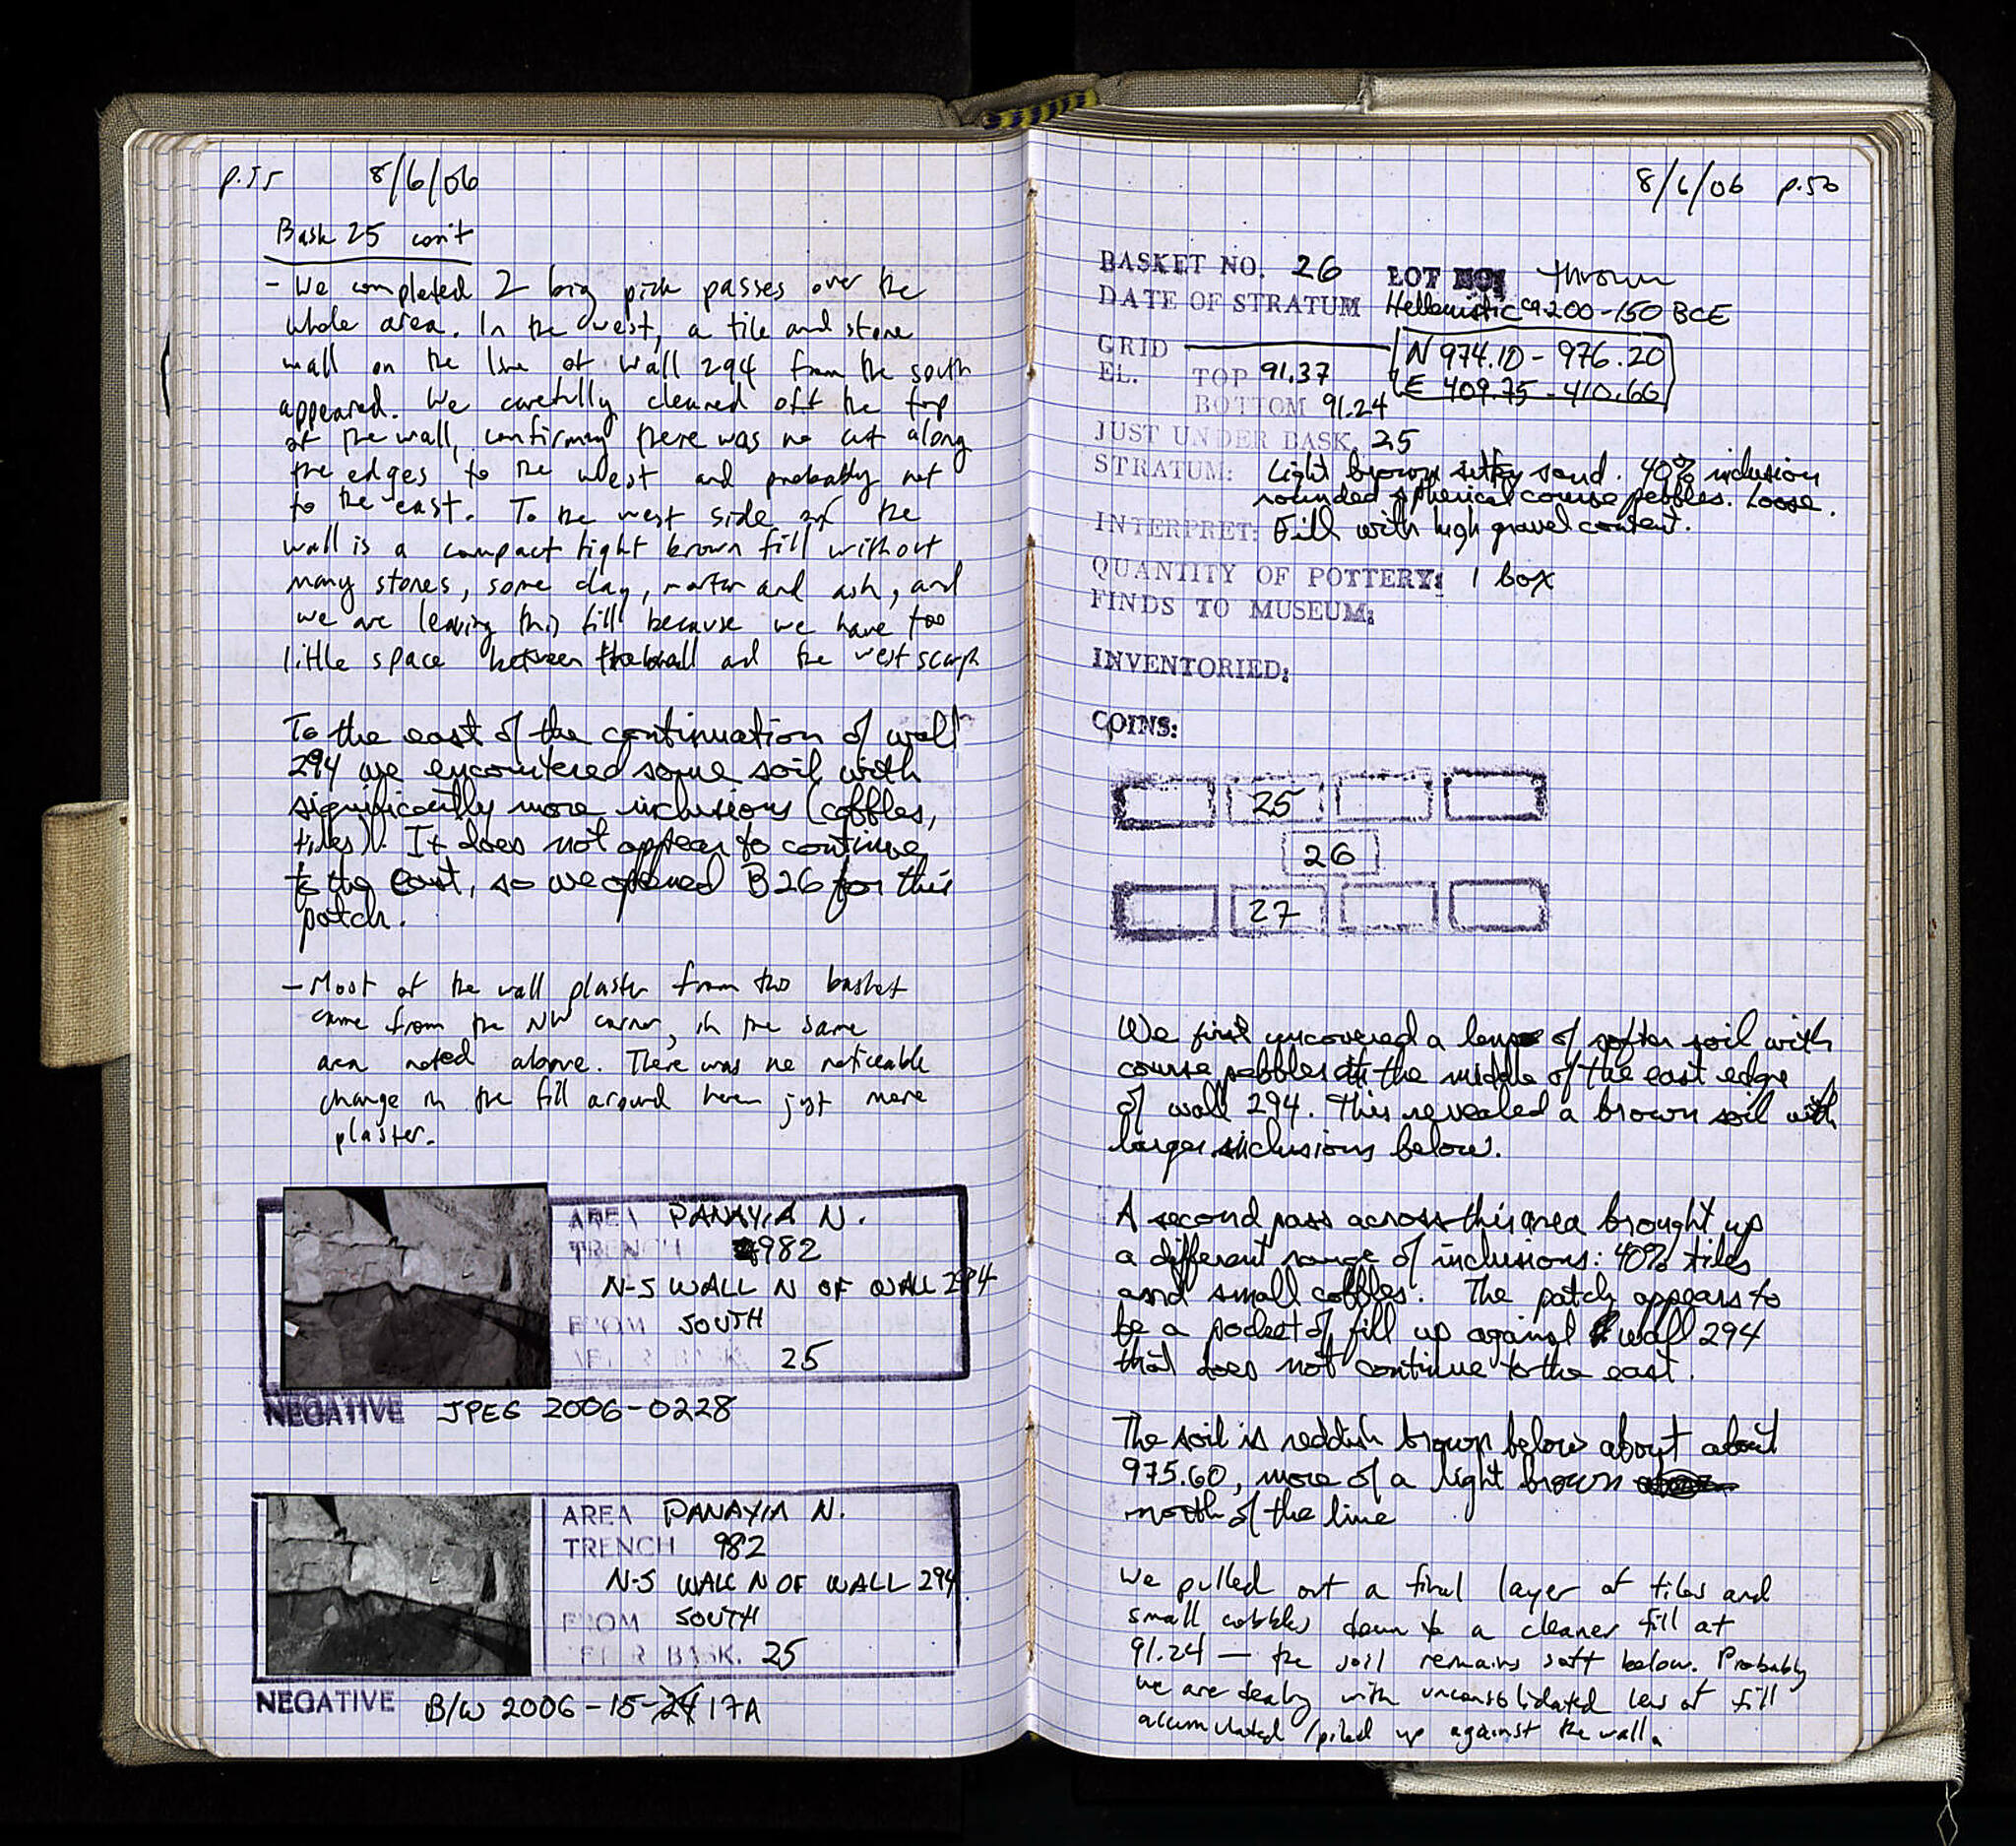 p.55 8/6/06
Bask 25 con't
- We completed 2 big pick passes over the
whole area. In the west, a tile and stone
wall on the line of wall 294 from the south
appeared. We carefully cleaned off the top
of the wall, confirming there was no cut along
the edges to the west and probably not
to the east. To the west side of the
wall is a compact light brown fill without
many stones, some clay, mortar and ash, and
we are leaving this fill because we have too
little space between the wall and the west scarp
To the east of the continuation of wall
294 we encountered some soil with
significantly more inclusions (cobbles,
tiles). It does not appear to continue
to the east, so we opened B26 for this
patch.
- Most of the wall plaster from this basket
came from the NW corner, in the same
area noted above. There was no noticeable
change in the fill around here just more
plaster.
AREA PANAYIA N.
TRENCH 982
N-S WALL N OF WALL 294
FROM SOUTH
AFTER BASK. 25
NEGATIVE JPEG 2006-0228
AREA PANAYIA N.
TRENCH 982
N-S WALL N OF WALL 294
FROM SOUTH
AFTER BASK. 25
NEGATIVE B/W 2006-15-24 17A
8/6/06 p.56
BASKET NO. 26 LOT NO: thrown
DATE OF STRATUM Hellenistic ca 200-150 BCE
GRID N 974.10 - 976.20
EL. TOP 91.37 E 409.75 - 410.66
BOTTOM 91.24
JUST UNDER BASK. 25
STRATUM: Light brown silty sand. 40% inclusion
rounded spherical course pebbles. Loose.
INTERPRET: Fill with high gravel content.
QUANTITY OF POTTERY: 1 box
FINDS TO MUSEUM:
INVENTORIED:
COINS:
25
26
27
We first uncovered a lens of softer soil with
course pebbles at the middle of the east edge
of wall 294. This revealed a brown soil with
larger inclusions below.
A second pass across this area brought up
a different range of inclusions: 40% tiles
and small cobbles. The patch appears to
be a pocket of fill up against wall 294
that does not continue to the east.
The soil is reddish brown below about about
975.60, more of a light brown
north of the line
We pulled out a final layer of tiles and
small cobbles down to a cleaner fill at
91.24 - the soil remains soft below. Probably
we are dealing with unconsolidated lens of fill
accumulated / piled up against the wall.